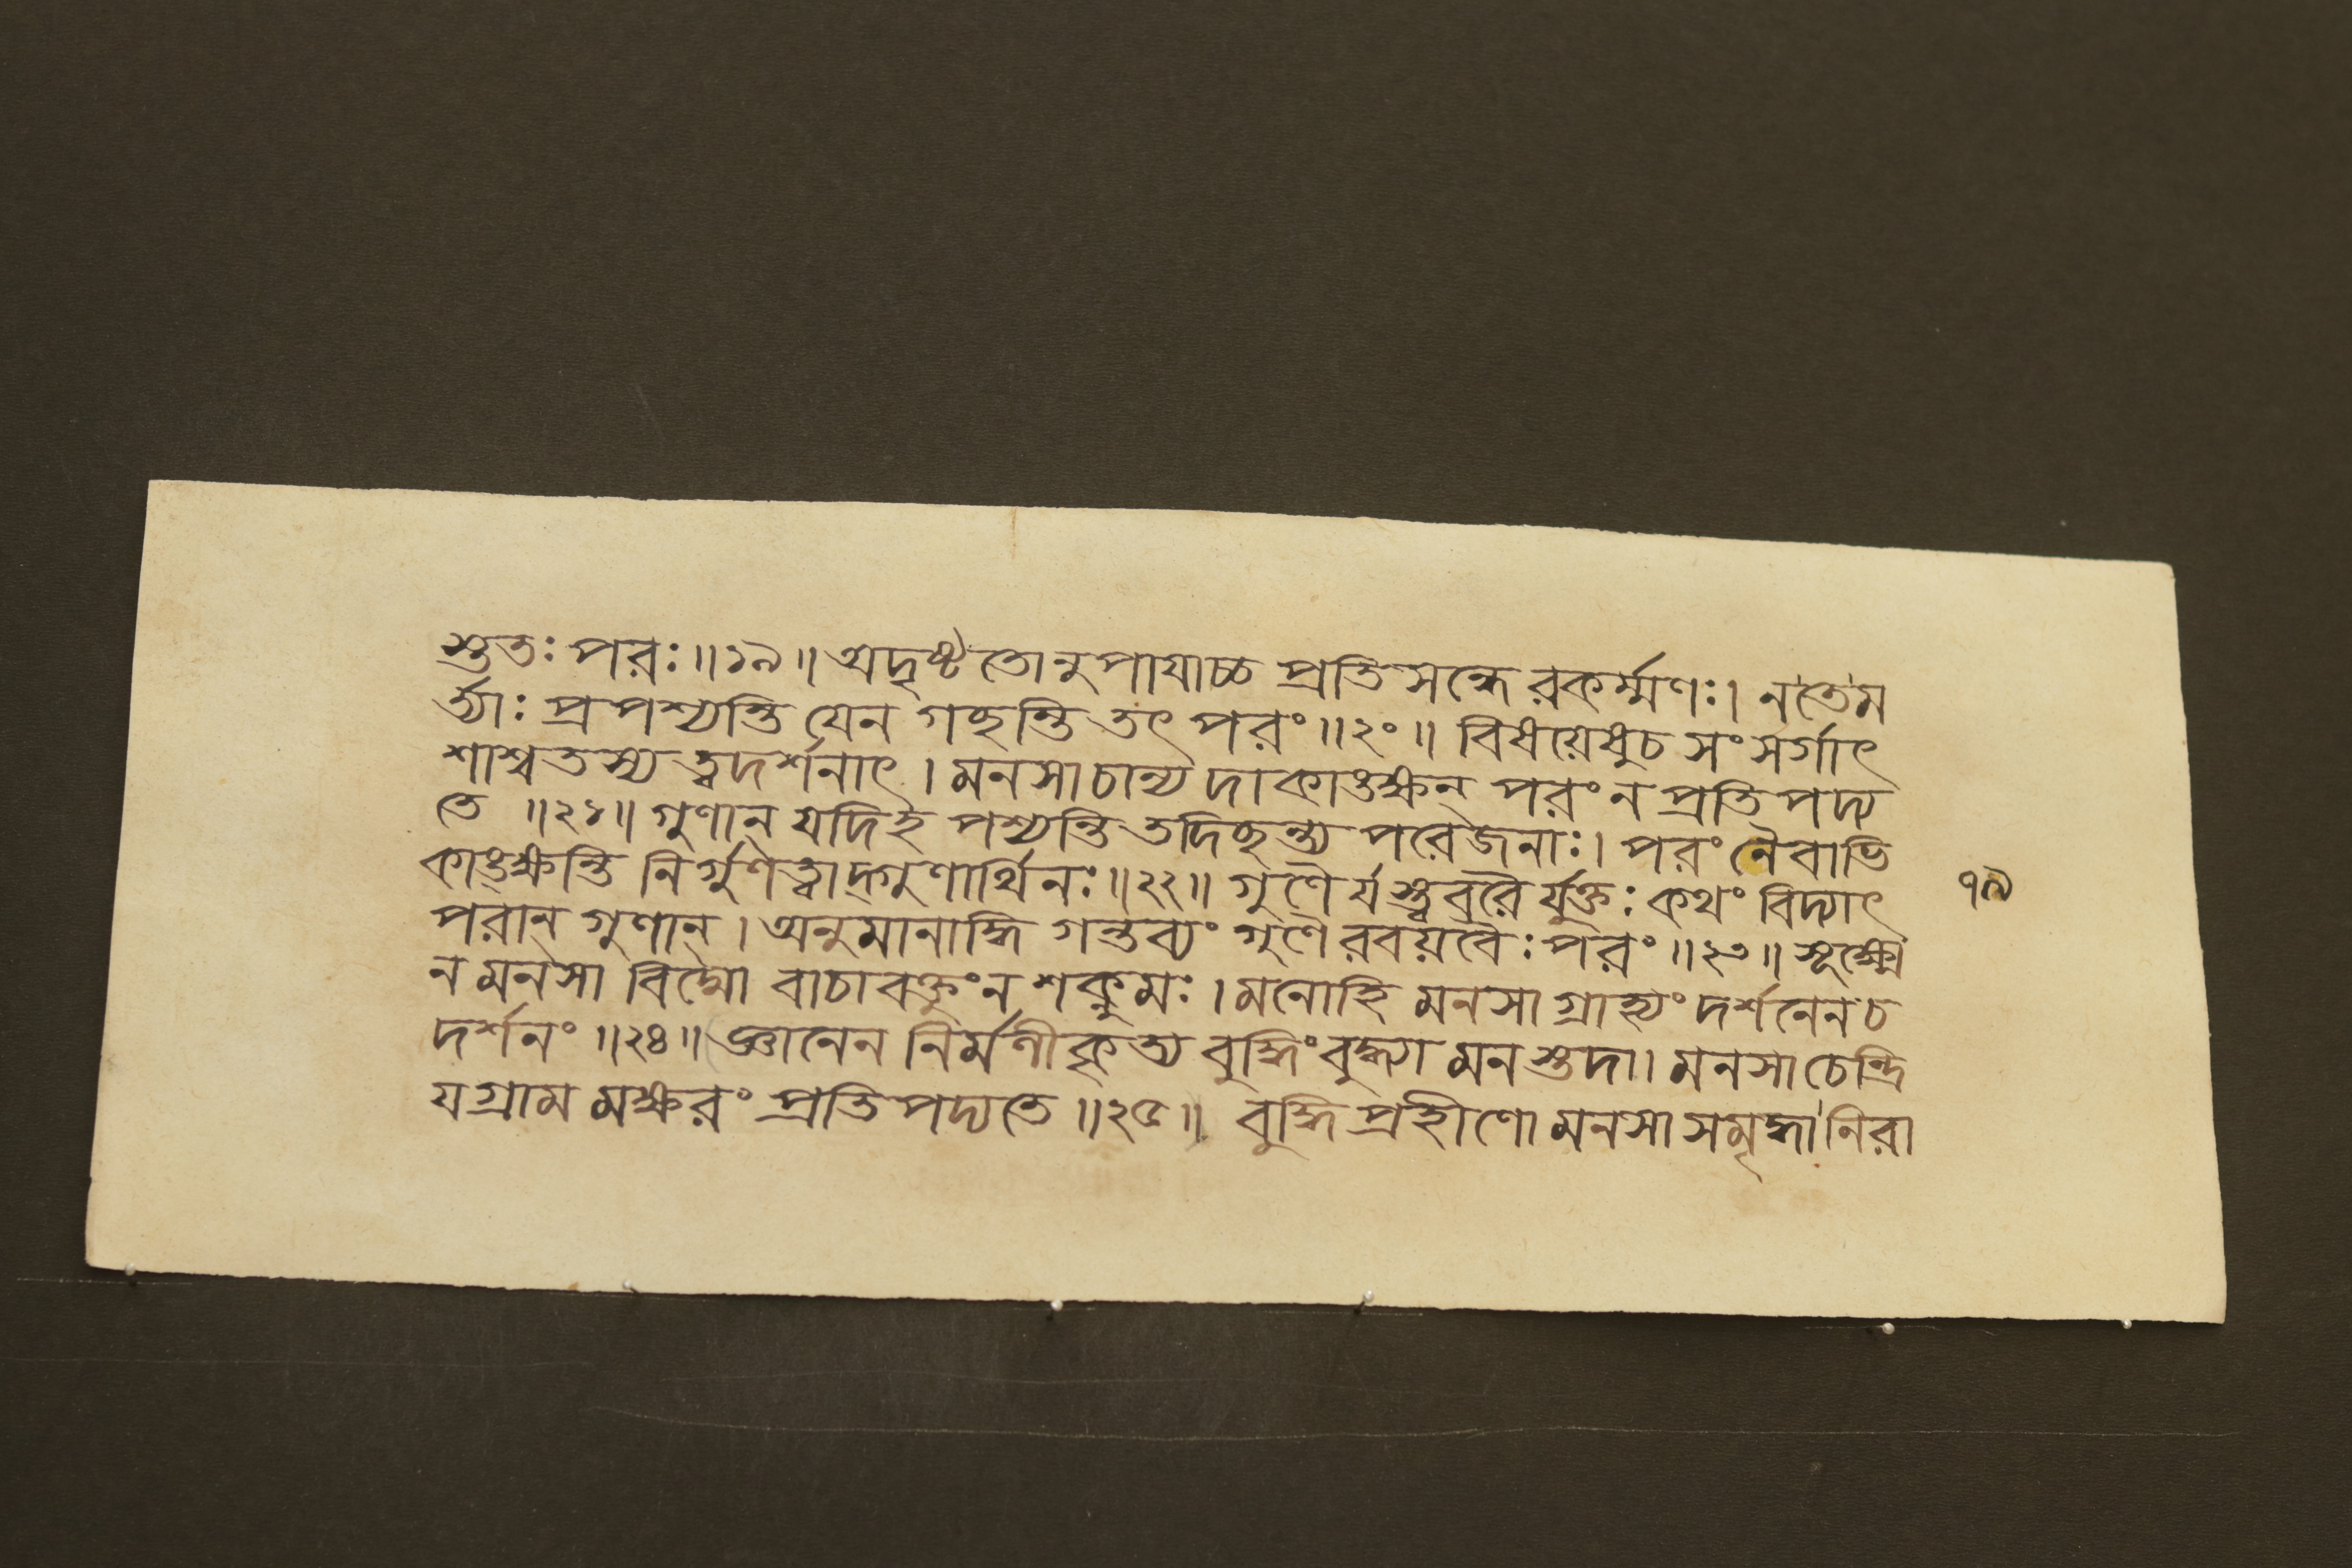 স্তুতঃ পরঃ॥১৯॥ অদৃষ্টতোনুপাযাচ্চ প্রতিসন্ধেরকর্ম্মণঃ। নতেম
র্ত্ত্যাঃ প্রপশ্যন্তি যেন গচ্ছন্তি তৎ পরং॥২০॥ বিষয়েষুচ সংসর্গাৎ
শাশ্বতস্য ত্বদর্শনাৎ। মনসাচান্য দাকাঙক্ষন্ পরংন প্রতিপদ্য
তে ॥২১॥ গুণান্ যদিহ পশ্যন্তি তদিচ্ছন্ত্য পরেজনাঃ। পরং নৈবাভি
কাঙ্ক্ষন্তি নির্গুণত্বাদ্গুণার্থিনঃ॥২২॥ গুণৈ র্যস্ত্ববরৈ র্যুক্তঃ কথং বিদ্যাৎ
পরান্ গুণান্। অনুমানাদ্ধি গন্তব্যং গুণৈরবয়বৈঃ পরং॥২৩॥ সূক্ষ্মে
ন মনসা বিদ্মো বাচা বক্তুংন শক্নুমঃ। মনোহি মনসা গ্রাহ্যং দর্শনেনচ
দর্শনং॥২৪॥ জ্ঞানেন নির্মণীকৃত্য বুদ্ধিংবুদ্ধ্যা মনস্তদা। মনসা চেন্দ্রি
যগ্রাম মক্ষরং প্রতিপদ্যতে॥২৫॥ বুদ্ধিপ্রহীণো মনসাসমৃদ্ধা নিরা
৭৯